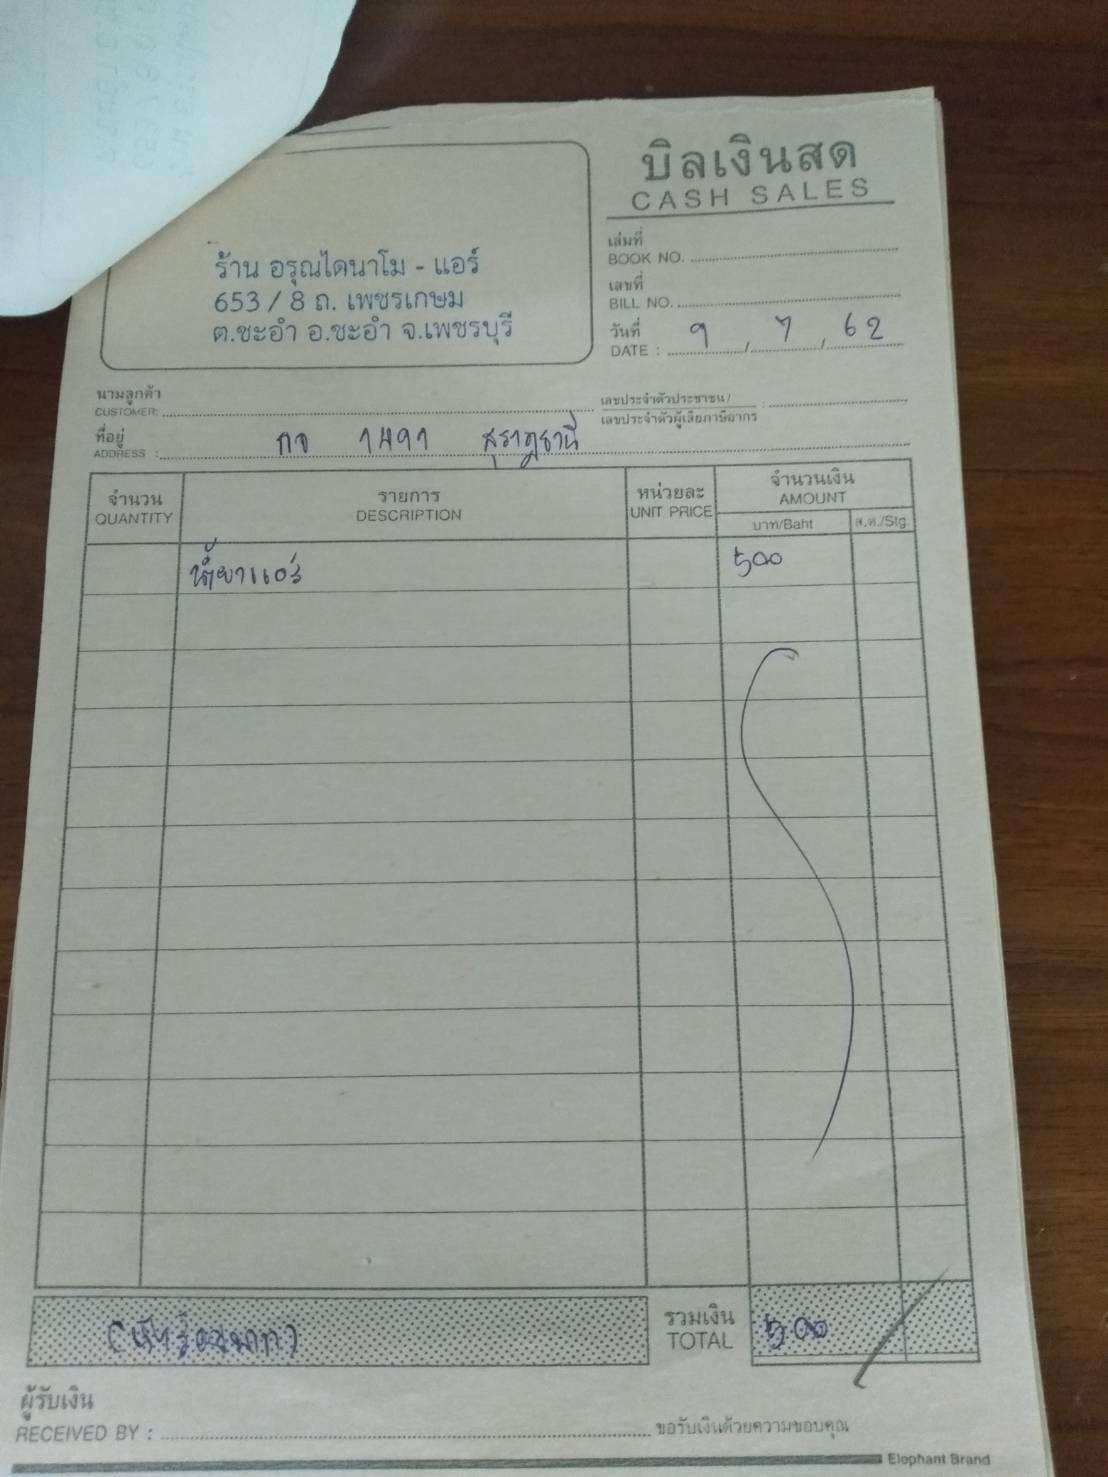 บิลเงินสด
CASH SALES
ร้าน อรุณไดนาโม - แอร์
653 / 8 ถ. เพชรเกษม
ต.ชะอำ อ.ชะอำ จ.เพชรบุรี
เล่มที่
BOOK NO.
เลขที่
BILL NO.
วันที่
DATE : 9 / 7 / 62
นามลูกค้า
CUSTOMER:
เลขประจำตัวประชาชน /
เลขประจำตัวผู้เสียภาษีอากร :
ที่อยู่
ADDRESS : กจ 1491 สุราฎธานี
จำนวน รายการ หน่วยละ จำนวนเงิน
QUANTITY DESCRIPTION UNIT PRICE AMOUNT
บาท/Baht ส.ต./Stg.
น้ำยาแอร์ 500
(ห้าร้อยบาท)
รวมเงิน
TOTAL 500
ผู้รับเงิน
RECEIVED BY :
ขอรับเงินด้วยความขอบคุณ
Elephant Brand